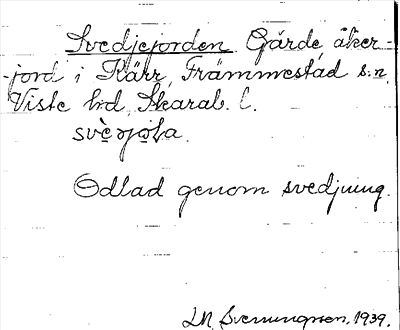 Svedjejorden. Gärde, åker-
-jord i Kärr, Främmestad s:n,
Viste hd, Skarab. l.
Odlad genom svedjning.
Svenungsson, 1939.